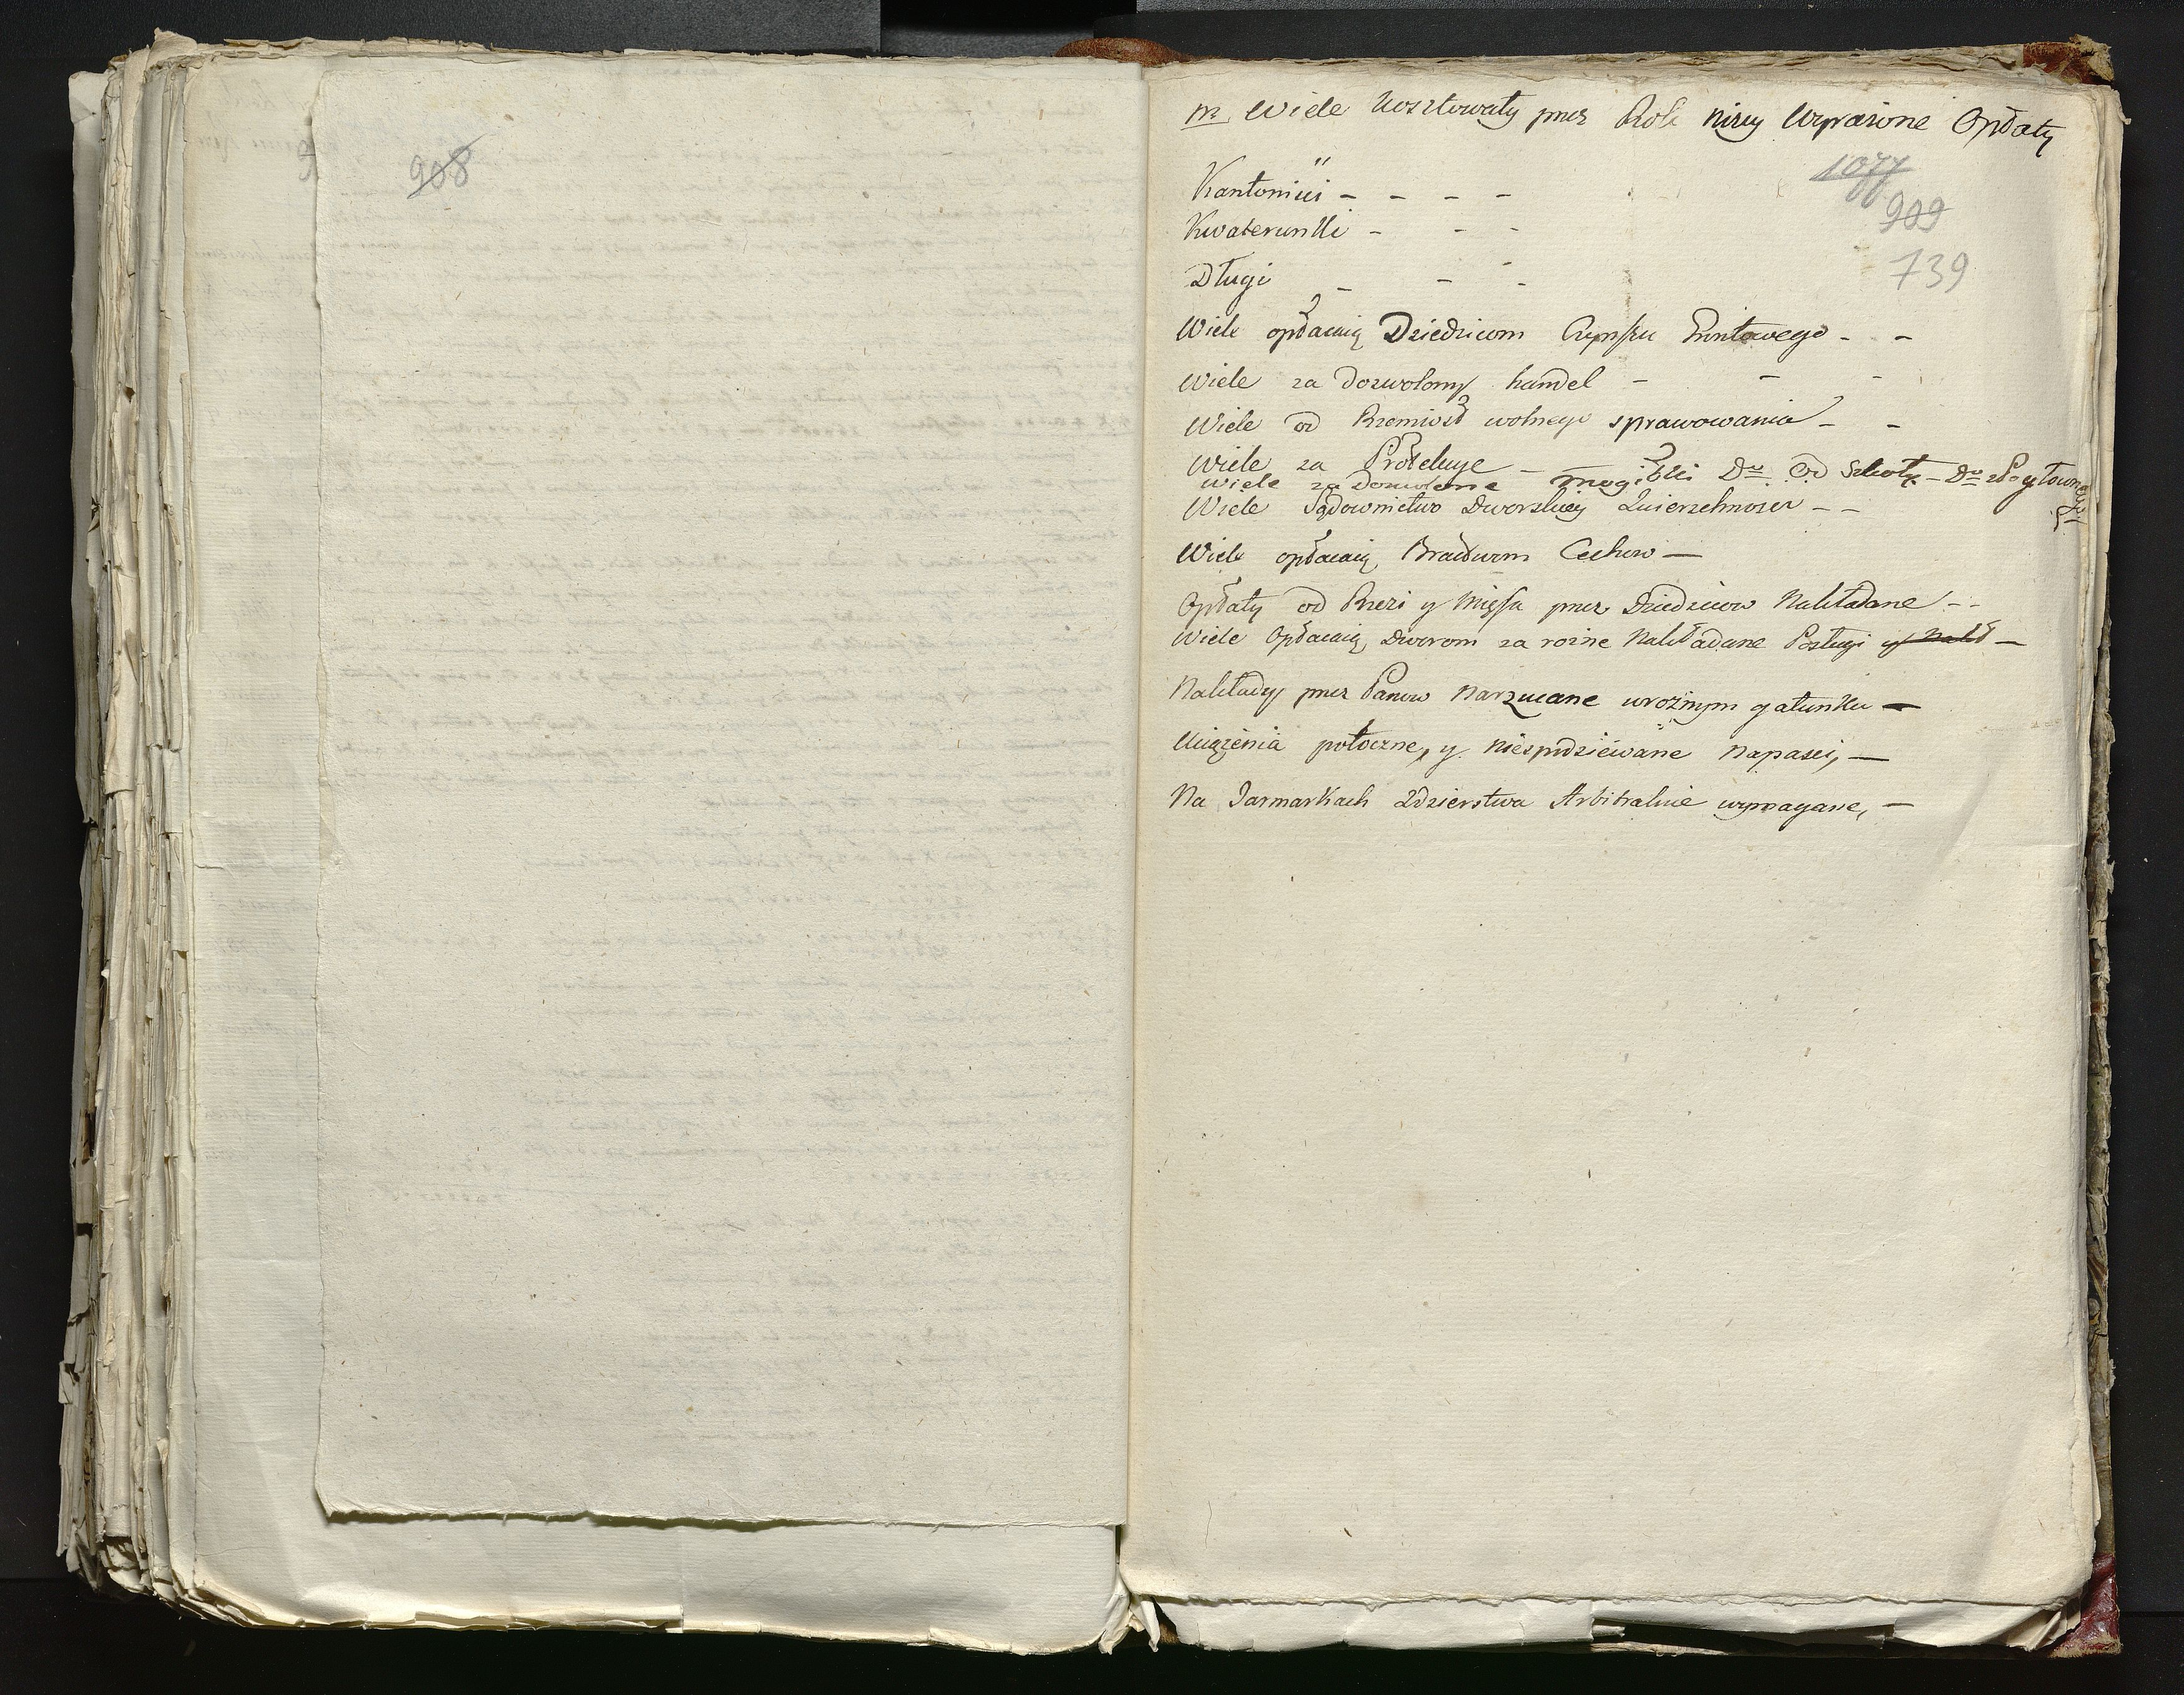 908
nr Wiele kosztowały przez Rok niżey Wyrażone Opłaty
1077
909
739
Kantonici - - - -
Kwaterunki - - -
Długi - - -
Wiele opłacaią Dziedzicom Czynszu Gruntowego - -
Wiele za dozwolony handel - - -
Wiele od Rzemiosł wolnego sprawowania - -
Wiele za Protekcye -
Wiele za dozwolenie mogiłki Do. Od Szkoły - Do
Wiele Sądownictwo Dworskiey Zwierzchnosci - -
Wiele opłacaią Bractwom Cechow -
Opłaty od Rzezi y Mięsa przez Dziedzicow Nakładane - -
Wiele Opłacaią Dworom za rożne Nakładane Posługi y Nakł -
Nakłady przez Panow Narzucane w rożnym gatunku -
Uciążenia potoczne, y niespodziewane Napasci, -
Na Jarmarkach Zdzierstwa Arbitralnie wymagane, -